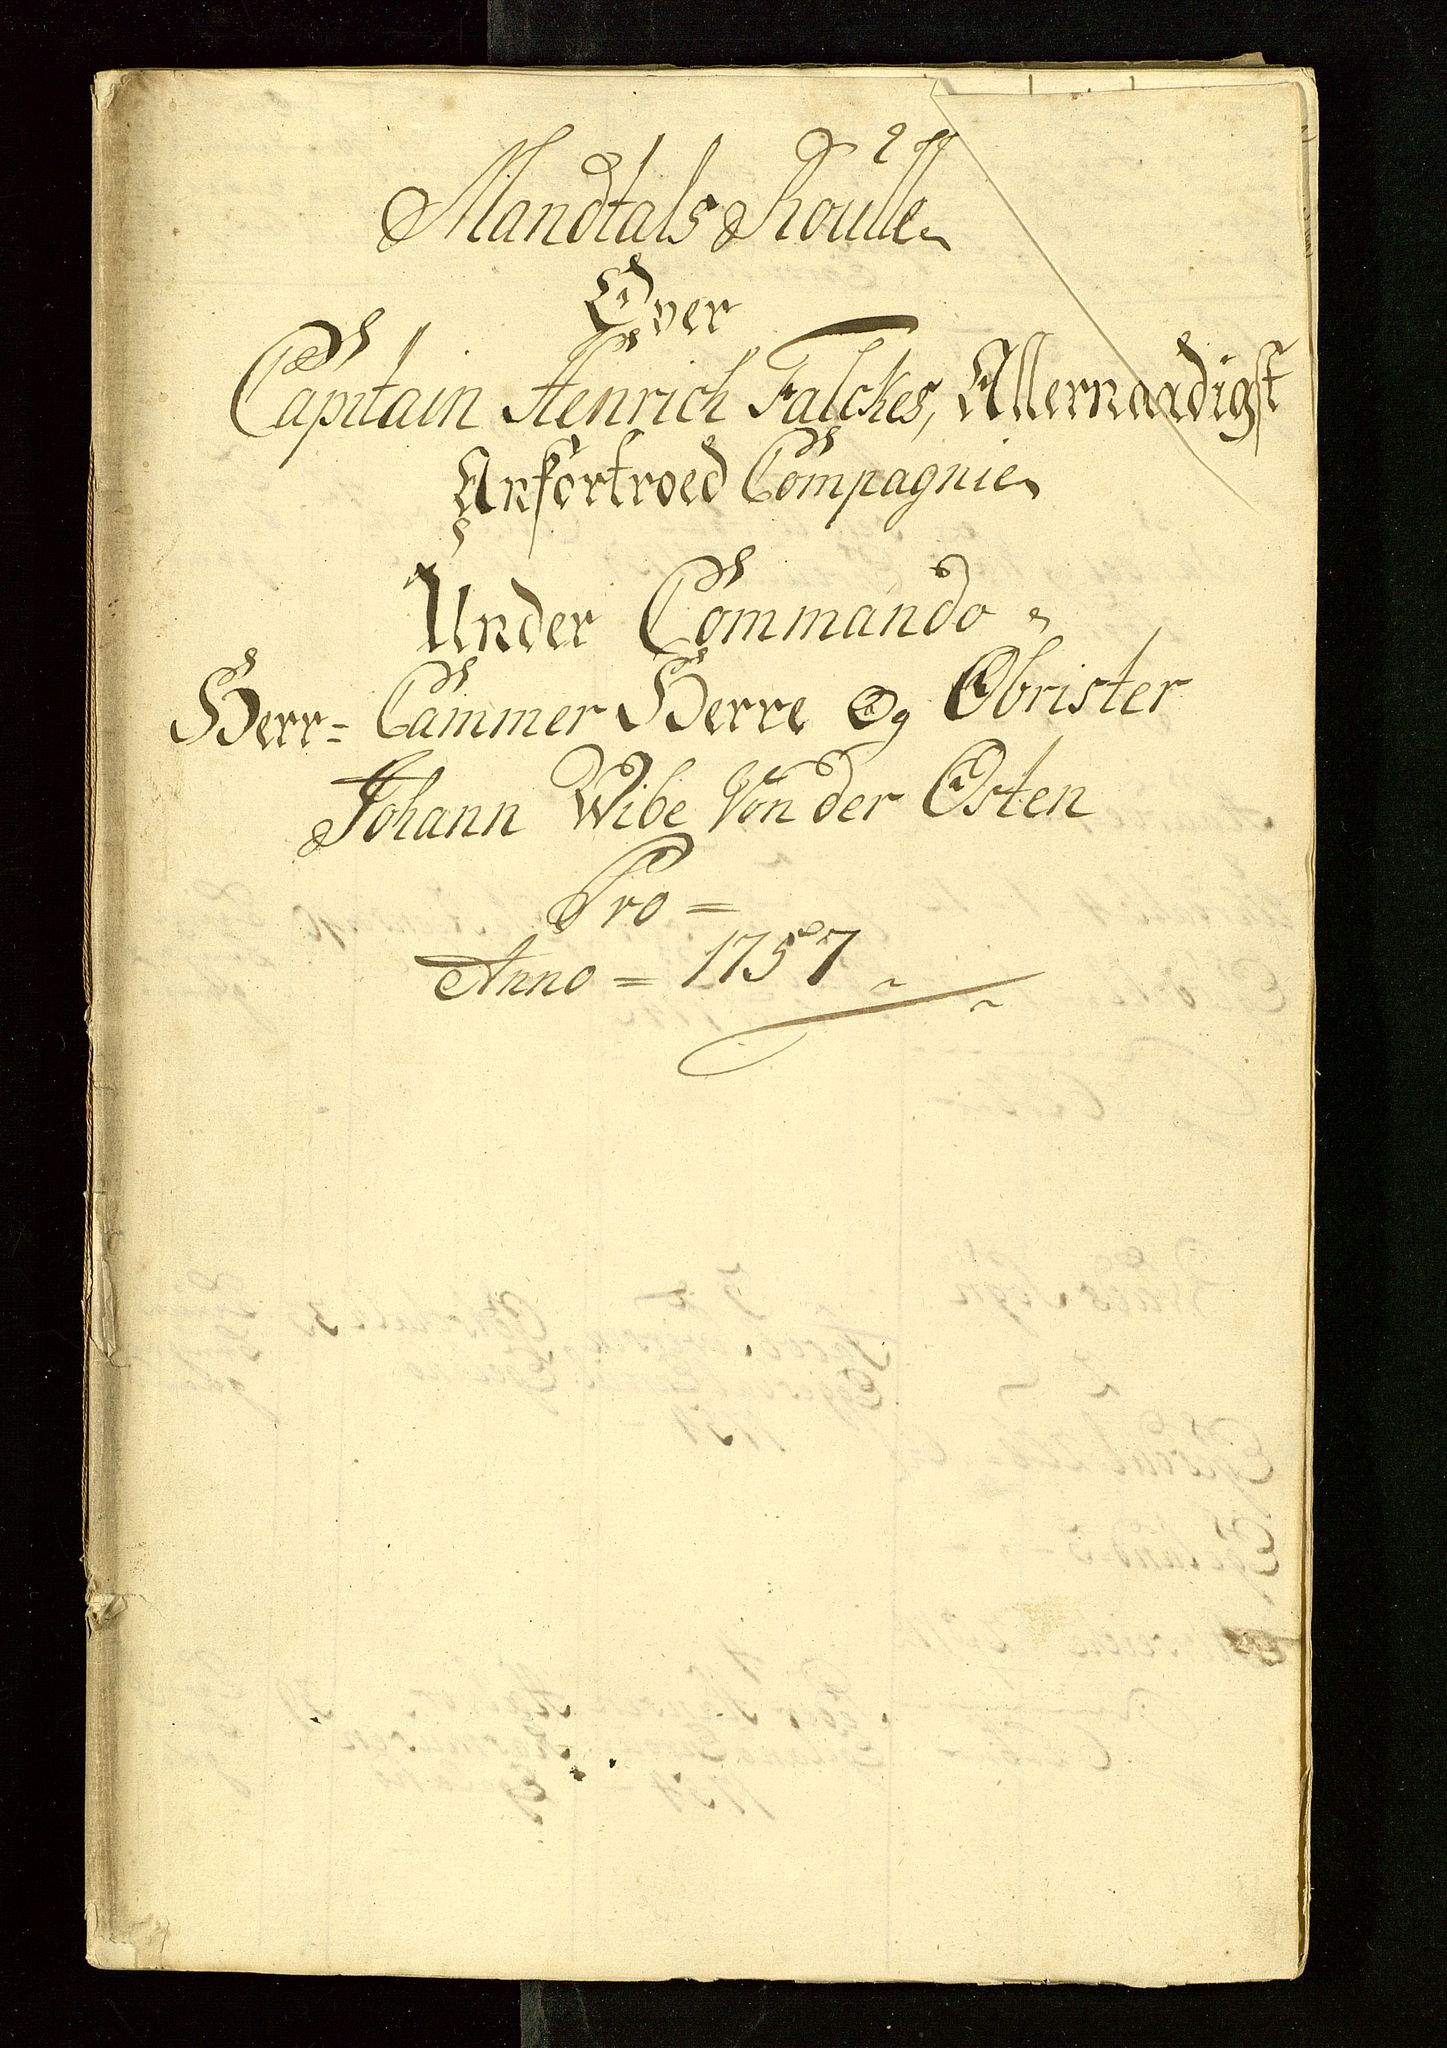 Mandtals Roulle
Over
Capitain Henrich Falckes, Allernaadigst
Anfortroed Compagnie
Under Commando
Herr= Cammer Herre Og Obrister
Johann Wibe Von der Osten
Pro =
Anno = 1757